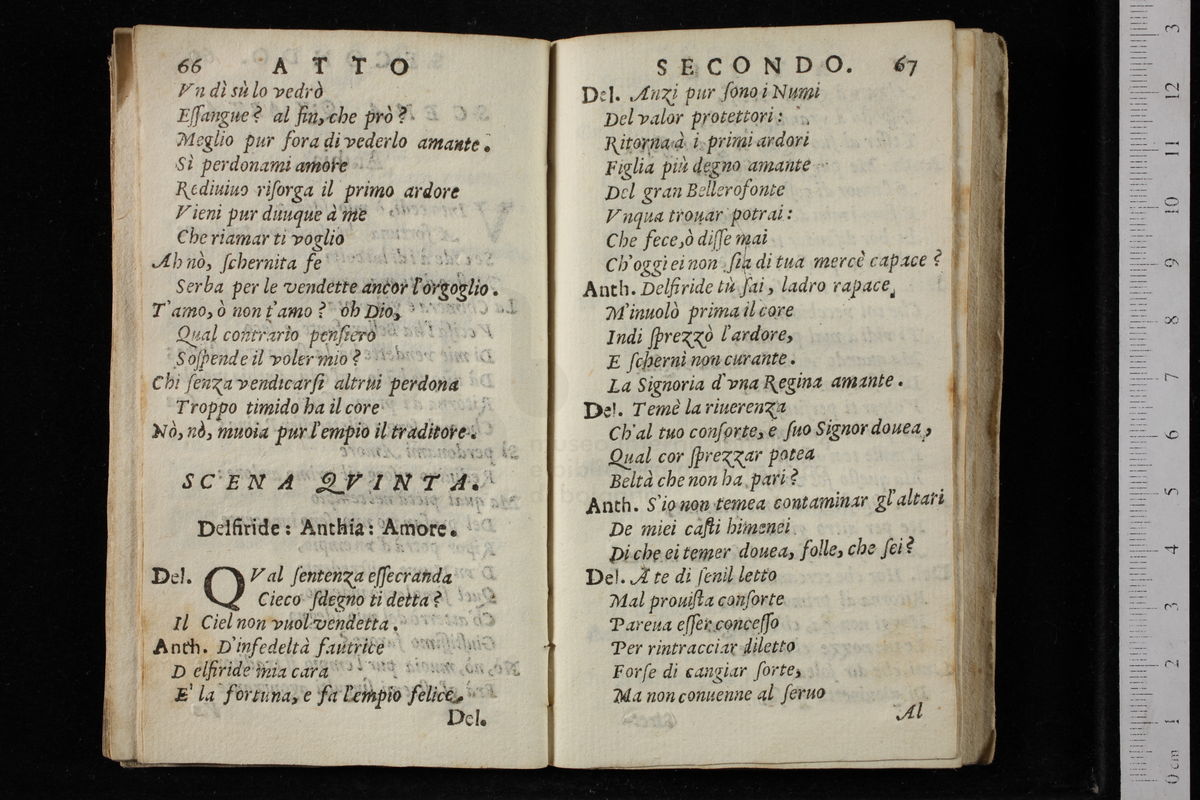 66 ATTO
Vn dì sù lo vedrò
Eſſangue? al fin, che prò?
Meglio pur fora di vederlo amante.
Sì perdonami amore
Rediuiuo riſorga il primo ardore
Vieni pur dūuque à me
Che riamar ti voglio
Ah nò, ſchernita fe
Serba per le vendette ancor l'orgoglio.
T'amo, ò non t'amo? oh Dio,
Qual contrario penſiero
Soſpende il voler mio?
Chi ſenza vendicarſi altrui perdona
Troppo timido ha il core
Nò, nò, muoia pur l'empio il traditore.
SCENA QVINTA.
Delfiride: Anthia: Amore.
Del. QVal ſentenza eſſecranda
Cieco ſdegno ti detta?
Il Ciel non vuol vendetta.
Anth. D'infedeltà fautrice
D elfiride mia cara
E' la fortuna, e fa l'empio felice.
Del.
SECONDO. 67
Del. Anzi pur ſono i Numi
Del valor protettori:
Ritorna à i primi ardori
Figlia più degno amante
Del gran Bellerofonte
Vnqua trouar potrai:
Che fece, ò diſſe mai
Ch'oggi ei non ſia di tua mercè capace?
Anth. Delfiride tù ſai, ladro rapace,
M'inuolò prima il core
Indi ſprezzò l'ardore,
E ſchernì non curante.
La Signoria d'vna Regina amante.
Del. Temè la riuerenza
Ch'al tuo conſorte, e ſuo Signor douea,
Qual cor ſprezzar potea
Beltà che non ha pari?
Anth. S'io non temea contaminar gl'altari
De miei caſti himenei
Di che ei temer douea, folle, che ſei?
Del. A te di ſenil letto
Mal prouiſta conſorte
Pareua eſſer conceſſo
Per rintracciar diletto
Forſe di cangiar ſorte,
Ma non conuenne al ſeruo
Al
0 cm 1 2 3 4 5 6 7 8 9 10 11 12 3